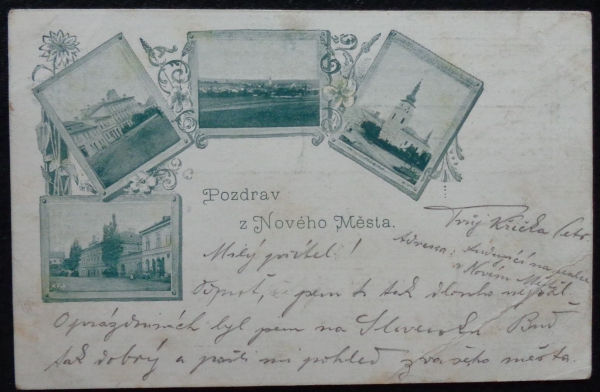 Pozdrav
z Nového Města.
Tvůj Křička Petr
Adresa: na
v Novém Městě
Milý příteli!
Odpusť, že jsem ti tak dlouho nepsal.
O prázdninách byl jsem na Slovensku. Buď
tak dobrý a pošli mi pohled z vašeho města.